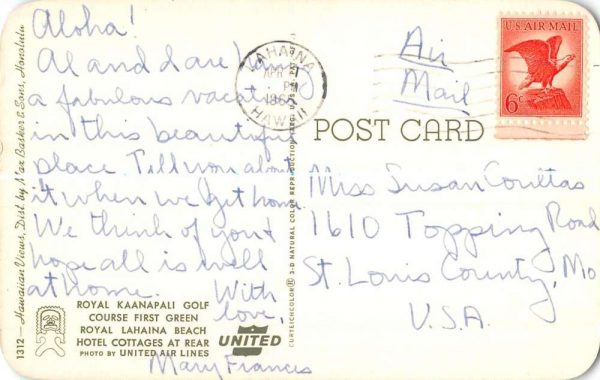 Aloha!
Al and I are having
a fabulous vacation
in this beautiful
place. Tell you about
it when we get home.
We think of you &
hope all is well
at home. With
love,
Mary Francis
ROYAL KAANAPALI GOLF
COURSE FIRST GREEN
ROYAL LAHAINA BEACH
HOTEL COTTAGES AT REAR
PHOTO BY UNITED AIR LINES
UNITED
1312 — Hawaiian Views, Dist. by Max Basker & Sons, Honolulu
3-D NATURAL COLOR REPRODUCTION
CURTEICHCOLOR®
LAHAINA
APR
PM
HAWAII
Air
Mail
U.S. AIR MAIL
6c
POST CARD
Miss Susan
1610 Topping Road
St. Louis County, Mo
U.S.A.